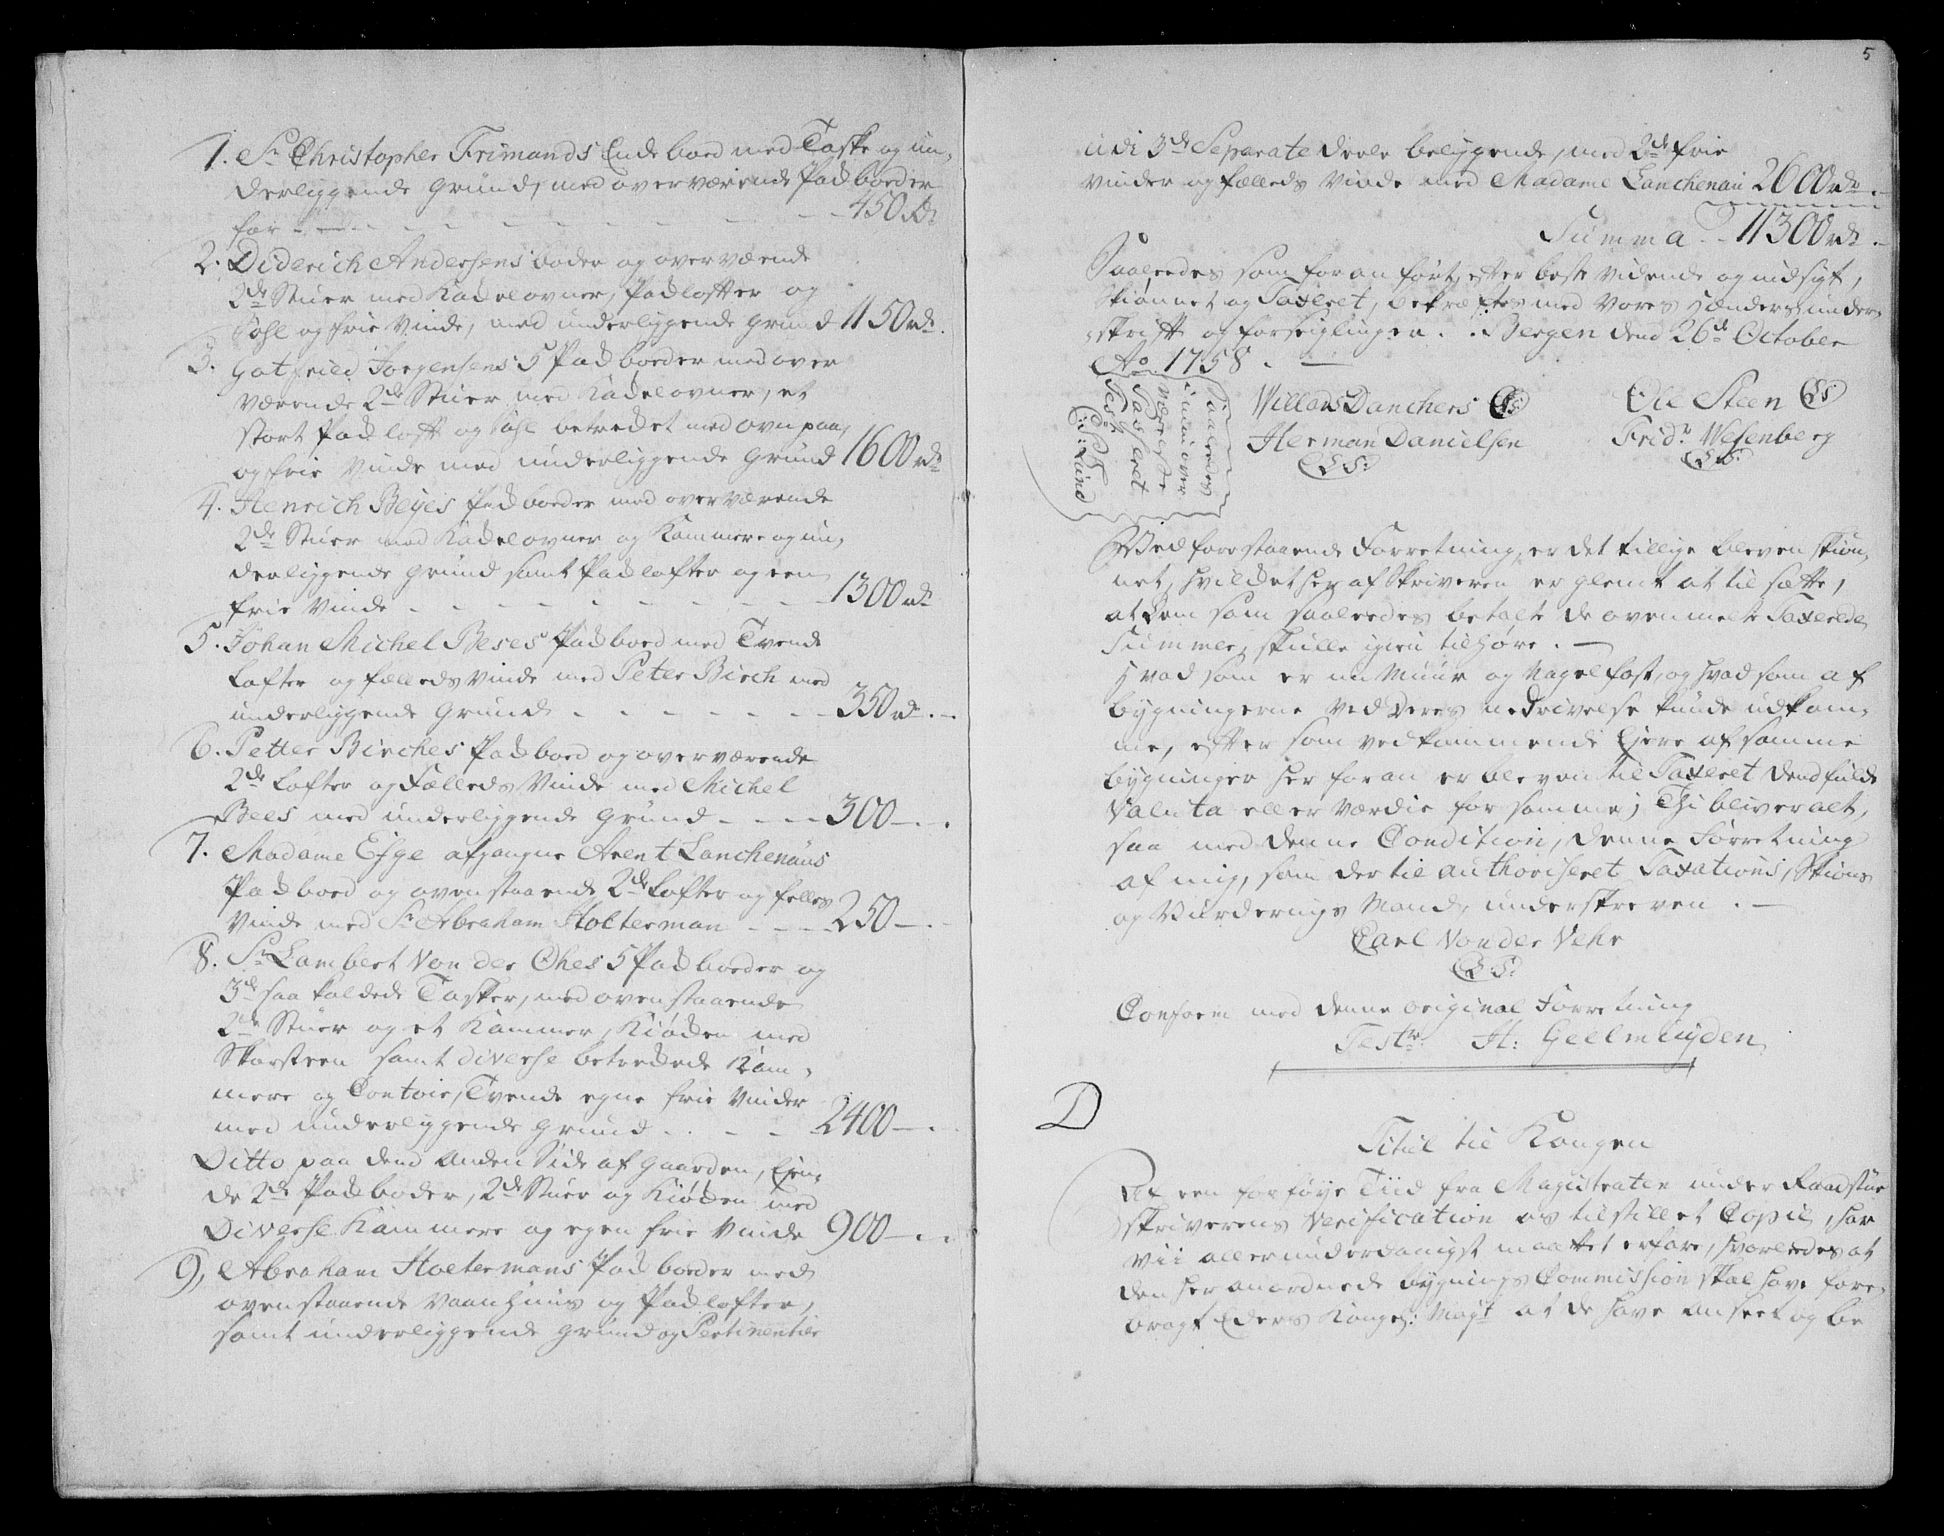 1. Sr. Christopher Frimands Ende boed med Taske og un-
derliggende Grund, med overværende Pakboeder
for - - - - - - - 450 Rd
2. Diderich Andersens boder og overværende
2de Stuer med Kackelovner, Pakloffter og
Sohl og frie Vinde, med underliggende Grund 1150 rdr.
3. Gotfried Jorgensens 5 Pakboeder med over
værende 2de Stuer med Kackelovner, et
stort Pakloft og Sohl betredet med ovn paa,
og frie Vinde med underliggende Grund 1600 rdr
4. Henrich Beyes Pakboeder med overværende
2de Stuer med Kackelovner og Kammere og un-
derliggende Grund samt Paklofter og een
frie Vinde - - - - - - - 1300 rdr
5. Johan Michel Beses Pakboed med Tvende
Lofter og fælleds Vinde med Peter Birch med
underliggende Grund - - - - - 350 rdr.
6. Petter Birches Pakboed og overværende
2de Lofter og Fælleds Vinde med Michel
Bees med underliggende Grund - - - 300 -.
7. Madame Efge afgangne Arent Lanchenaus
Pakboed og ovenstaaende 2de Lofter og felles
Vinde med Sr. Abraham Holterman - - - 250 -.
8. Sr. Lambert Von der Ohes 5 Pakboeder og
3de saa kaldede Tasker, med ovenstaaende
2de Stuer og et Kammer, Kiøcken med
Skorsteen samt diverse betreckede Kam-
mere og Contoir, Tvende egne frie Vinder
med underliggende Grund - - - 2400 -.
Ditto paa dend Anden Side af Gaarden,
2de Pakboder, 2de Stuer og Kiøcken med
Diverse Kammere og egen frie Vinde 900 -.
9, Abraham Holtermans Pakboeder med
ovenstaaende Vaanhuus og Paklofter,
samt underliggende Grund og Pertinentier
5
udi 3de Separate Deele beliggende, med 2de frie
Vinder og fælleds Vinde med Madame Lanchenau 2600 rdr.
Summa - - 11300 rdr.
Saaleedes som foran ført, efter beste Vidende og indsigt,
Skiønnet og Taxeret, bekræftes med Vores Hænders under-
skrifft og forseiglinger. Bergen dend 26de October
Ao. 1758. -
Saaleedes
inden over
værelse
Taxseret
Test:
C: Lind
Willads Danchers (LS:)
Ole Steen (LS)
Herman Danielsen
(LS:)
Fridr: Wesenberg
(LS:)
Ved forestaaende Forretning, er det tillige bleven skiøn-
net, hvilcket her af Skriveren er glemt at til sætte,
at dem som saaleedes betalte de ovenmelte Taxerede
Summer, skulle igien tilhøre. -
Hvad som er nu Muur og Nagelfast, og hvad som af
bygningerne ved Deres nedrivelse kunde udkom-
me, efter som vedkommende Ejere af samme
bygninger her foran er bleven til Taxeret dend fulde
Valuta eller Værdie for samme; Thi bliver alt,
saa med denne Condition, denne Forretning
af mig, som der til authoriseret Taxations, Skiøns
og Vurderings Mand, underskreven. -
Carl Von der Vehr
(LS:)
Conform med denne original Forretning
Testr. H: Geelmuyden
D
Titul til Kongen
Af een for føye Tiid fra Magistraten under Raadstue
skriverens Verification os tilstillet Copie, har
Vii allerunderdanigst maattet erfare, hvorleedes at
den her anordnede bygnings Commission skal have fore-
bragt Eders Kongel: Mayt at de have anseet og be